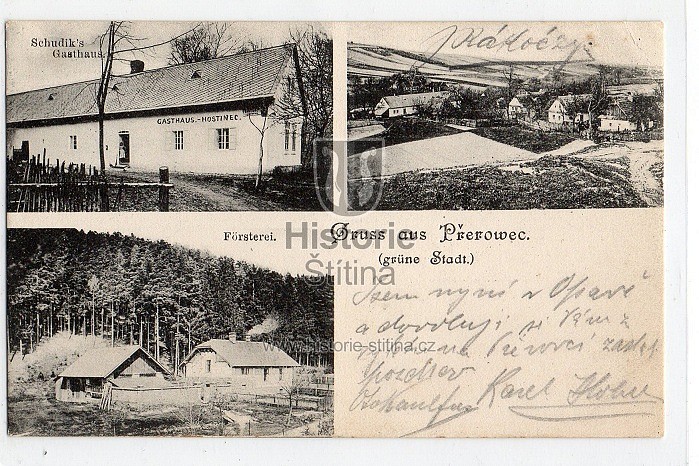 Schudik's
Gasthaus.
GASTHAUS.-HOSTINEC.
Rákóczy
Försterei.
Gruss aus Přerowec.
(grüne Stadt.)
Historie
Štítina
www.historie-stitina.cz
Jsem nyní v Opavě
a dovoluji si Vám z
na Přerovci zaslat
pozdrav
Karel